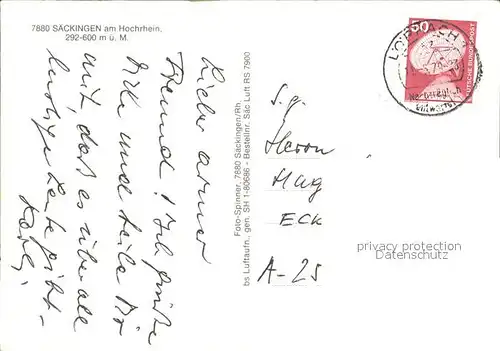 7880 SÄCKINGEN am Hochrhein,
292-600 m ü. M.
Lieber armer
Freund! Ich grüße
Dich und teile Dir
mit, daß es überall
lustige Leute gibt.
Foto-Spinner, 7880 Säckingen/Rh.
bs Luftaufn., gen. SH 1-80686 - Bestellnr. Säc Luft RS 7900
50
DEUTSCHE BUNDESPOST
S. g.
Herrn
HAG
ECK
A-25
privacy protection
Datenschutz